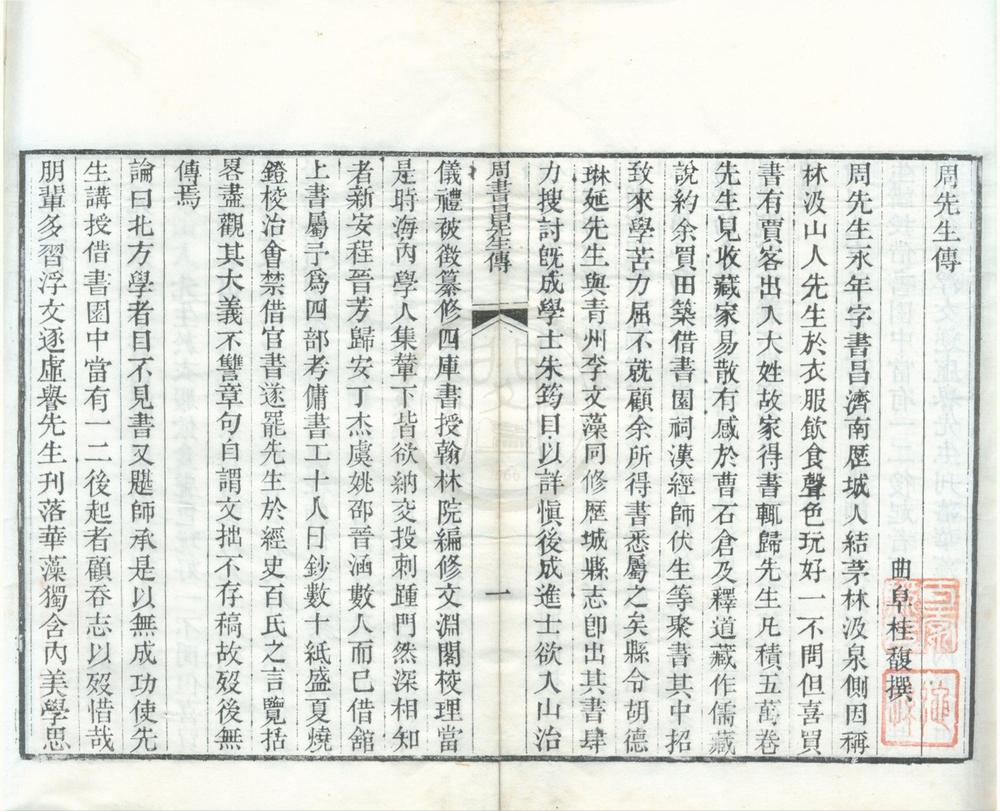 周先生傳
曲阜桂馥撰
周先生永年字書昌濟南歷城人結茅林汲泉側因稱
林汲山人先生於衣服飲食聲色玩好一不問但喜買
書有賈客出入大姓故家得書輒歸先生凡積五萬卷
先生見收藏家易散有感於曹石倉及釋道藏作儒藏
說約余買田築借書園祠漢經師伏生等聚書其中招
致來學苦力屈不就顧余所得書悉屬之矣縣令胡德
琳延先生與青州李文藻同修歷城縣志卽出其書肆
力搜討旣成學士朱筠目以詳慎後成進士欲入山治
周書昌先生傳
一
儀禮被徵纂修四庫書授翰林院編修文淵閣校理當
是時海內學人集輦下皆欲納交投刺踵門然深相知
者新安程晉芳歸安丁杰虞姚邵晉涵數人而已借舘
上書屬予爲四部考傭書工十人日鈔數十紙盛夏燒
鐙校治會禁借官書遂罷先生於經史百氏之言覽括
畧盡觀其大義不讐章句自謂文拙不存稿故歿後無
傳焉
論曰北方學者目不見書又尟師承是以無成功使先
生講授借書園中當有一二後起者顧吞志以歿惜哉
朋輩多習浮文逐虛譽先生刊落華藻獨含內美學思